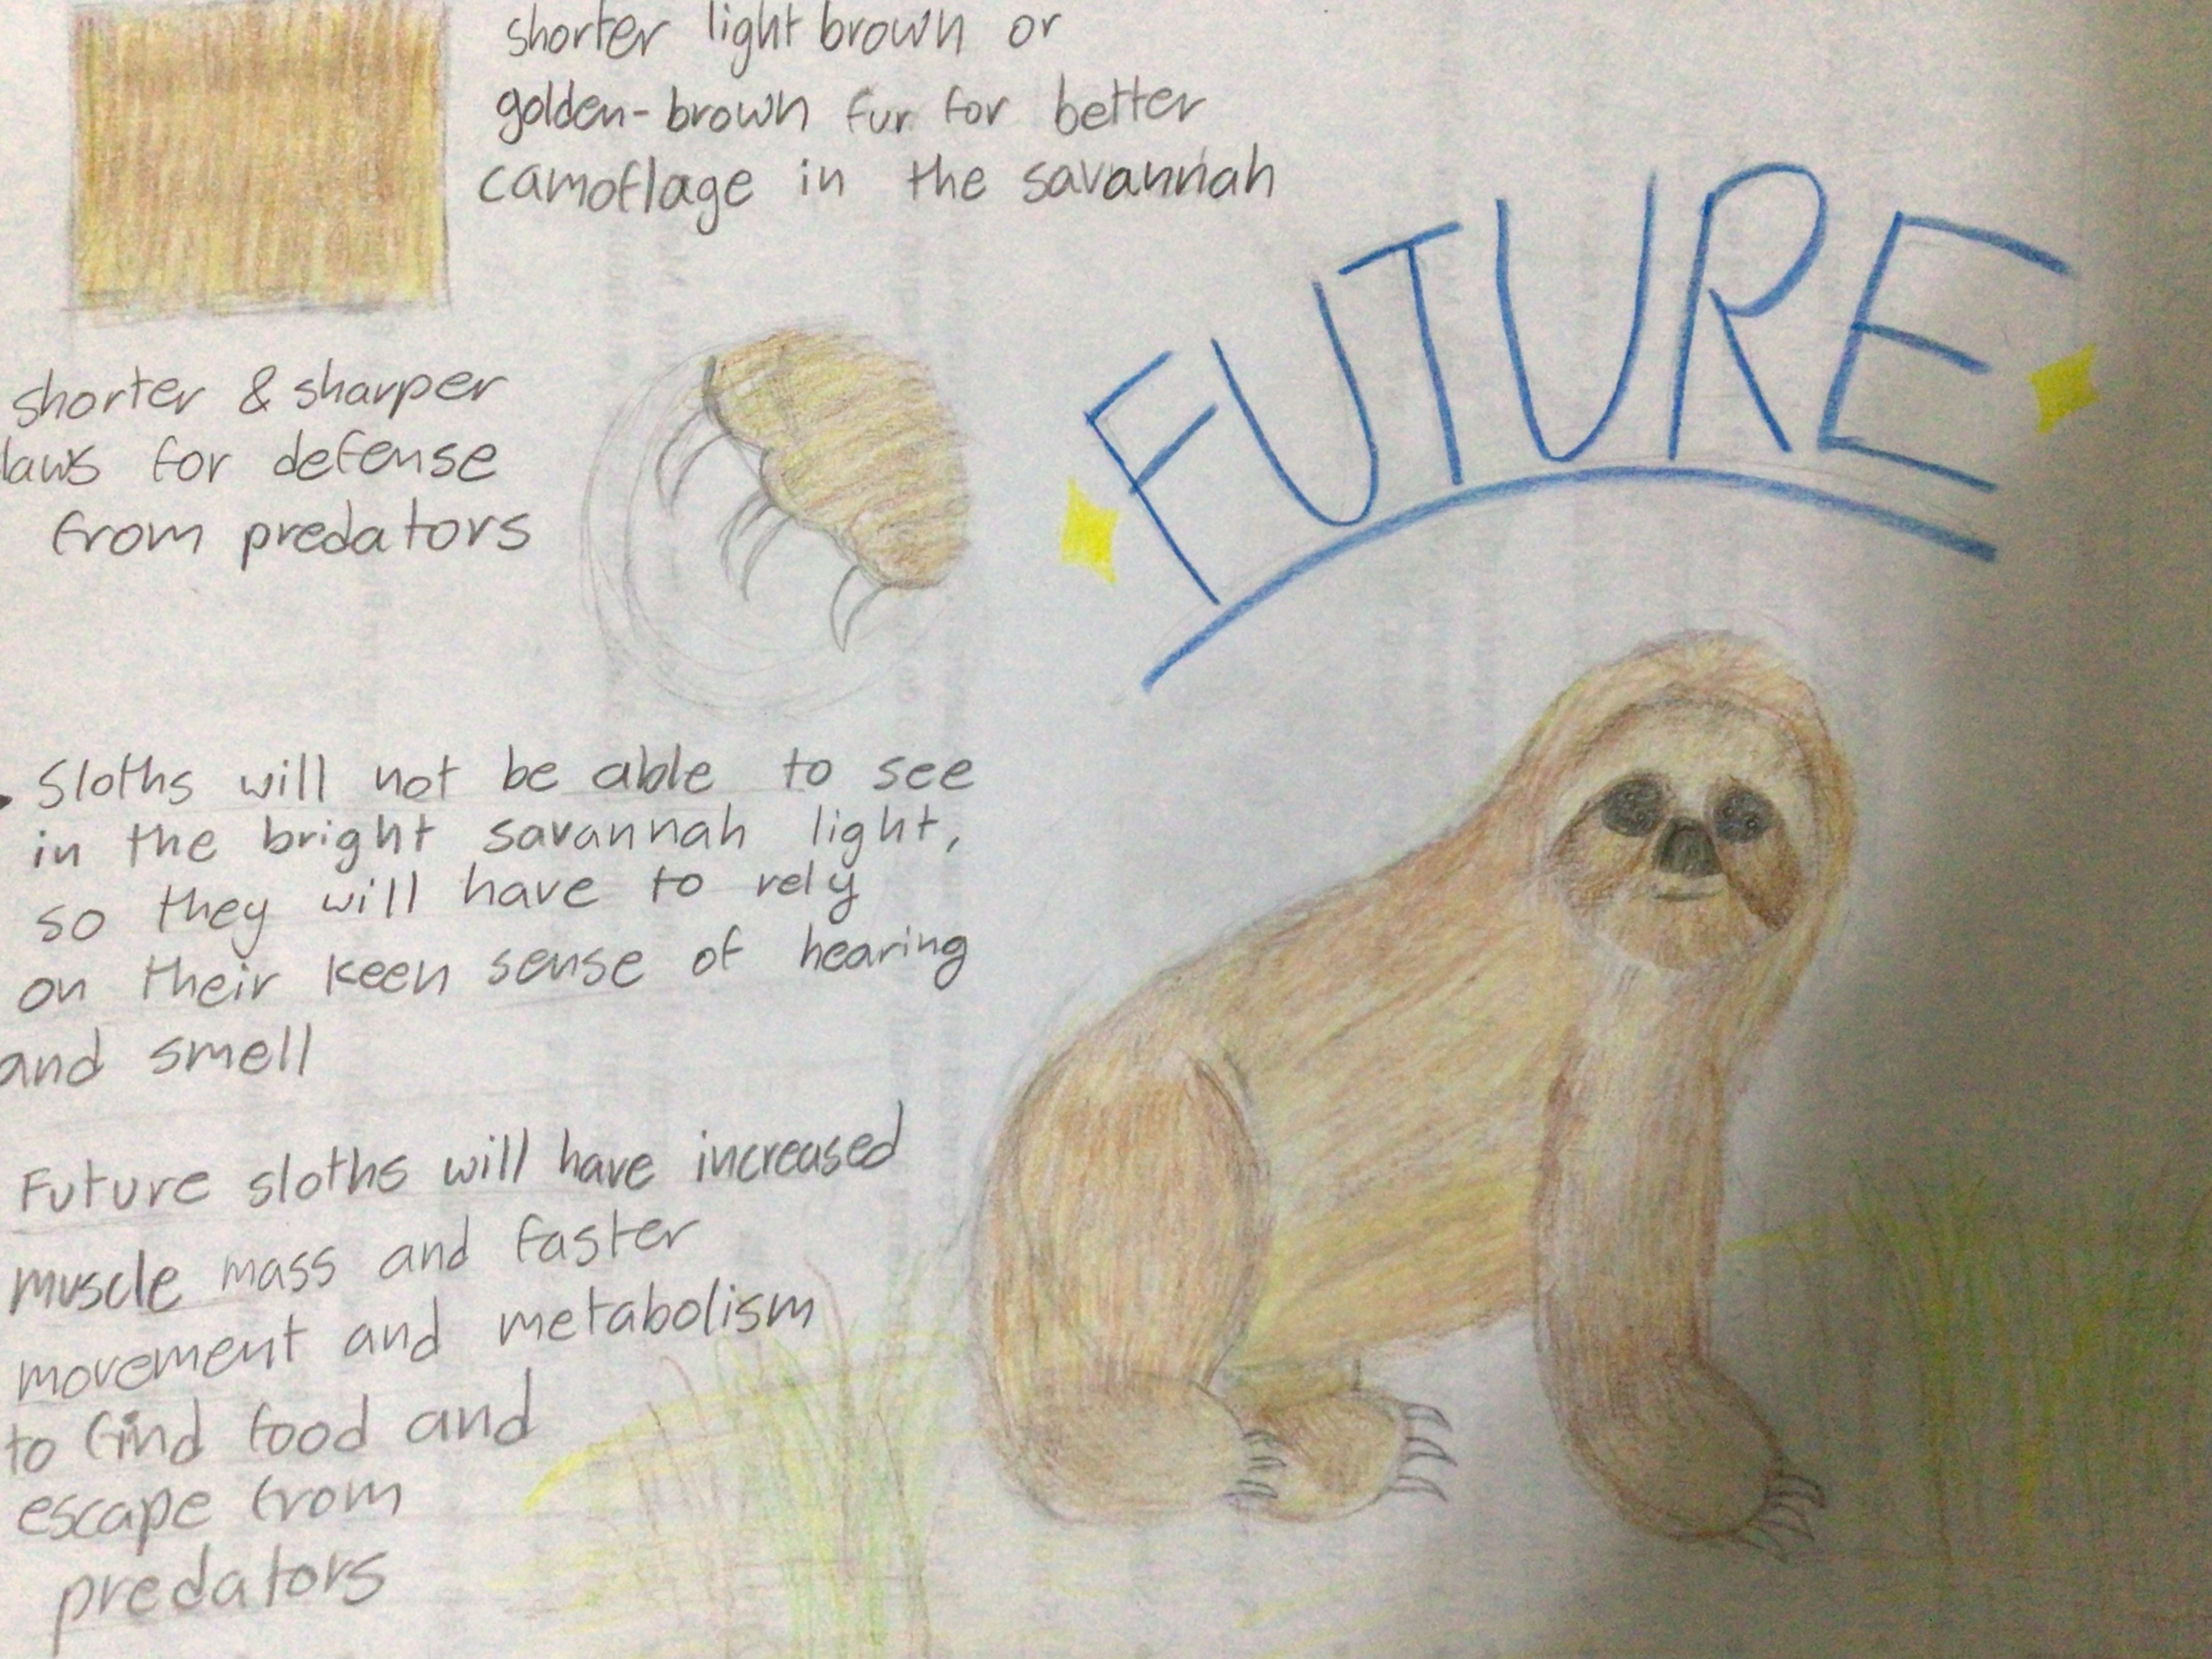 shorter light brown or
golden-brown fur for better
camoflage in the savannah
FUTURE
shorter & sharper
laws for defense
from predators
. Sloths will not be able to see
in the bright savannah light,
so they will have to rely
on their keen sense of hearing
and smell
Future sloths will have increased
muscle mass and faster
movement and metabolism
to find food and
escape from
predators